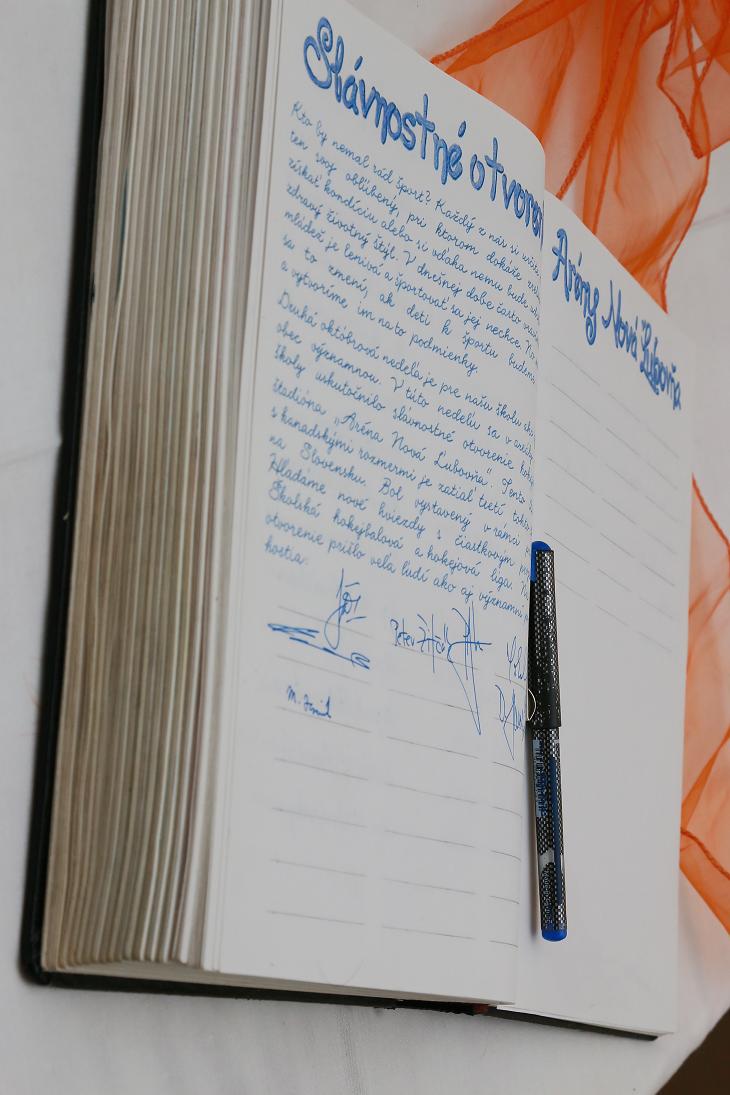 Slávnostné otvoren
Kto by nemal rád šport? Každý z nás si určite
ten svoj obľúbený, pri ktorom dokáže
získať kondíciu alebo si vďaka nemu bude
zdravý životný štýl. V dnešnej dobe často
mládež je lenivá a športovať sa jej nechce.
sa to zmení, ak deti k športu budeme
a vytvoríme im na to podmienky.
Druhá októbrová nedeľa je pre našu školu
obec významnou. V túto nedeľu sa v areáli
školy uskutočnilo slávnostné otvorenie
štadióna „Aréna Nová Ľubovňa“. Tento
s kanadskými rozmermi je zatiaľ tretí
na Slovensku. Bol vystavený v rámci
Hľadáme nové hviezdy s čiastkovým
Školská hokejbalová a hokejová liga. Na
otvorenie prišlo veľa ľudí ako aj významní
hostia:
Peter
M.
Arény Nová Ľubovňa